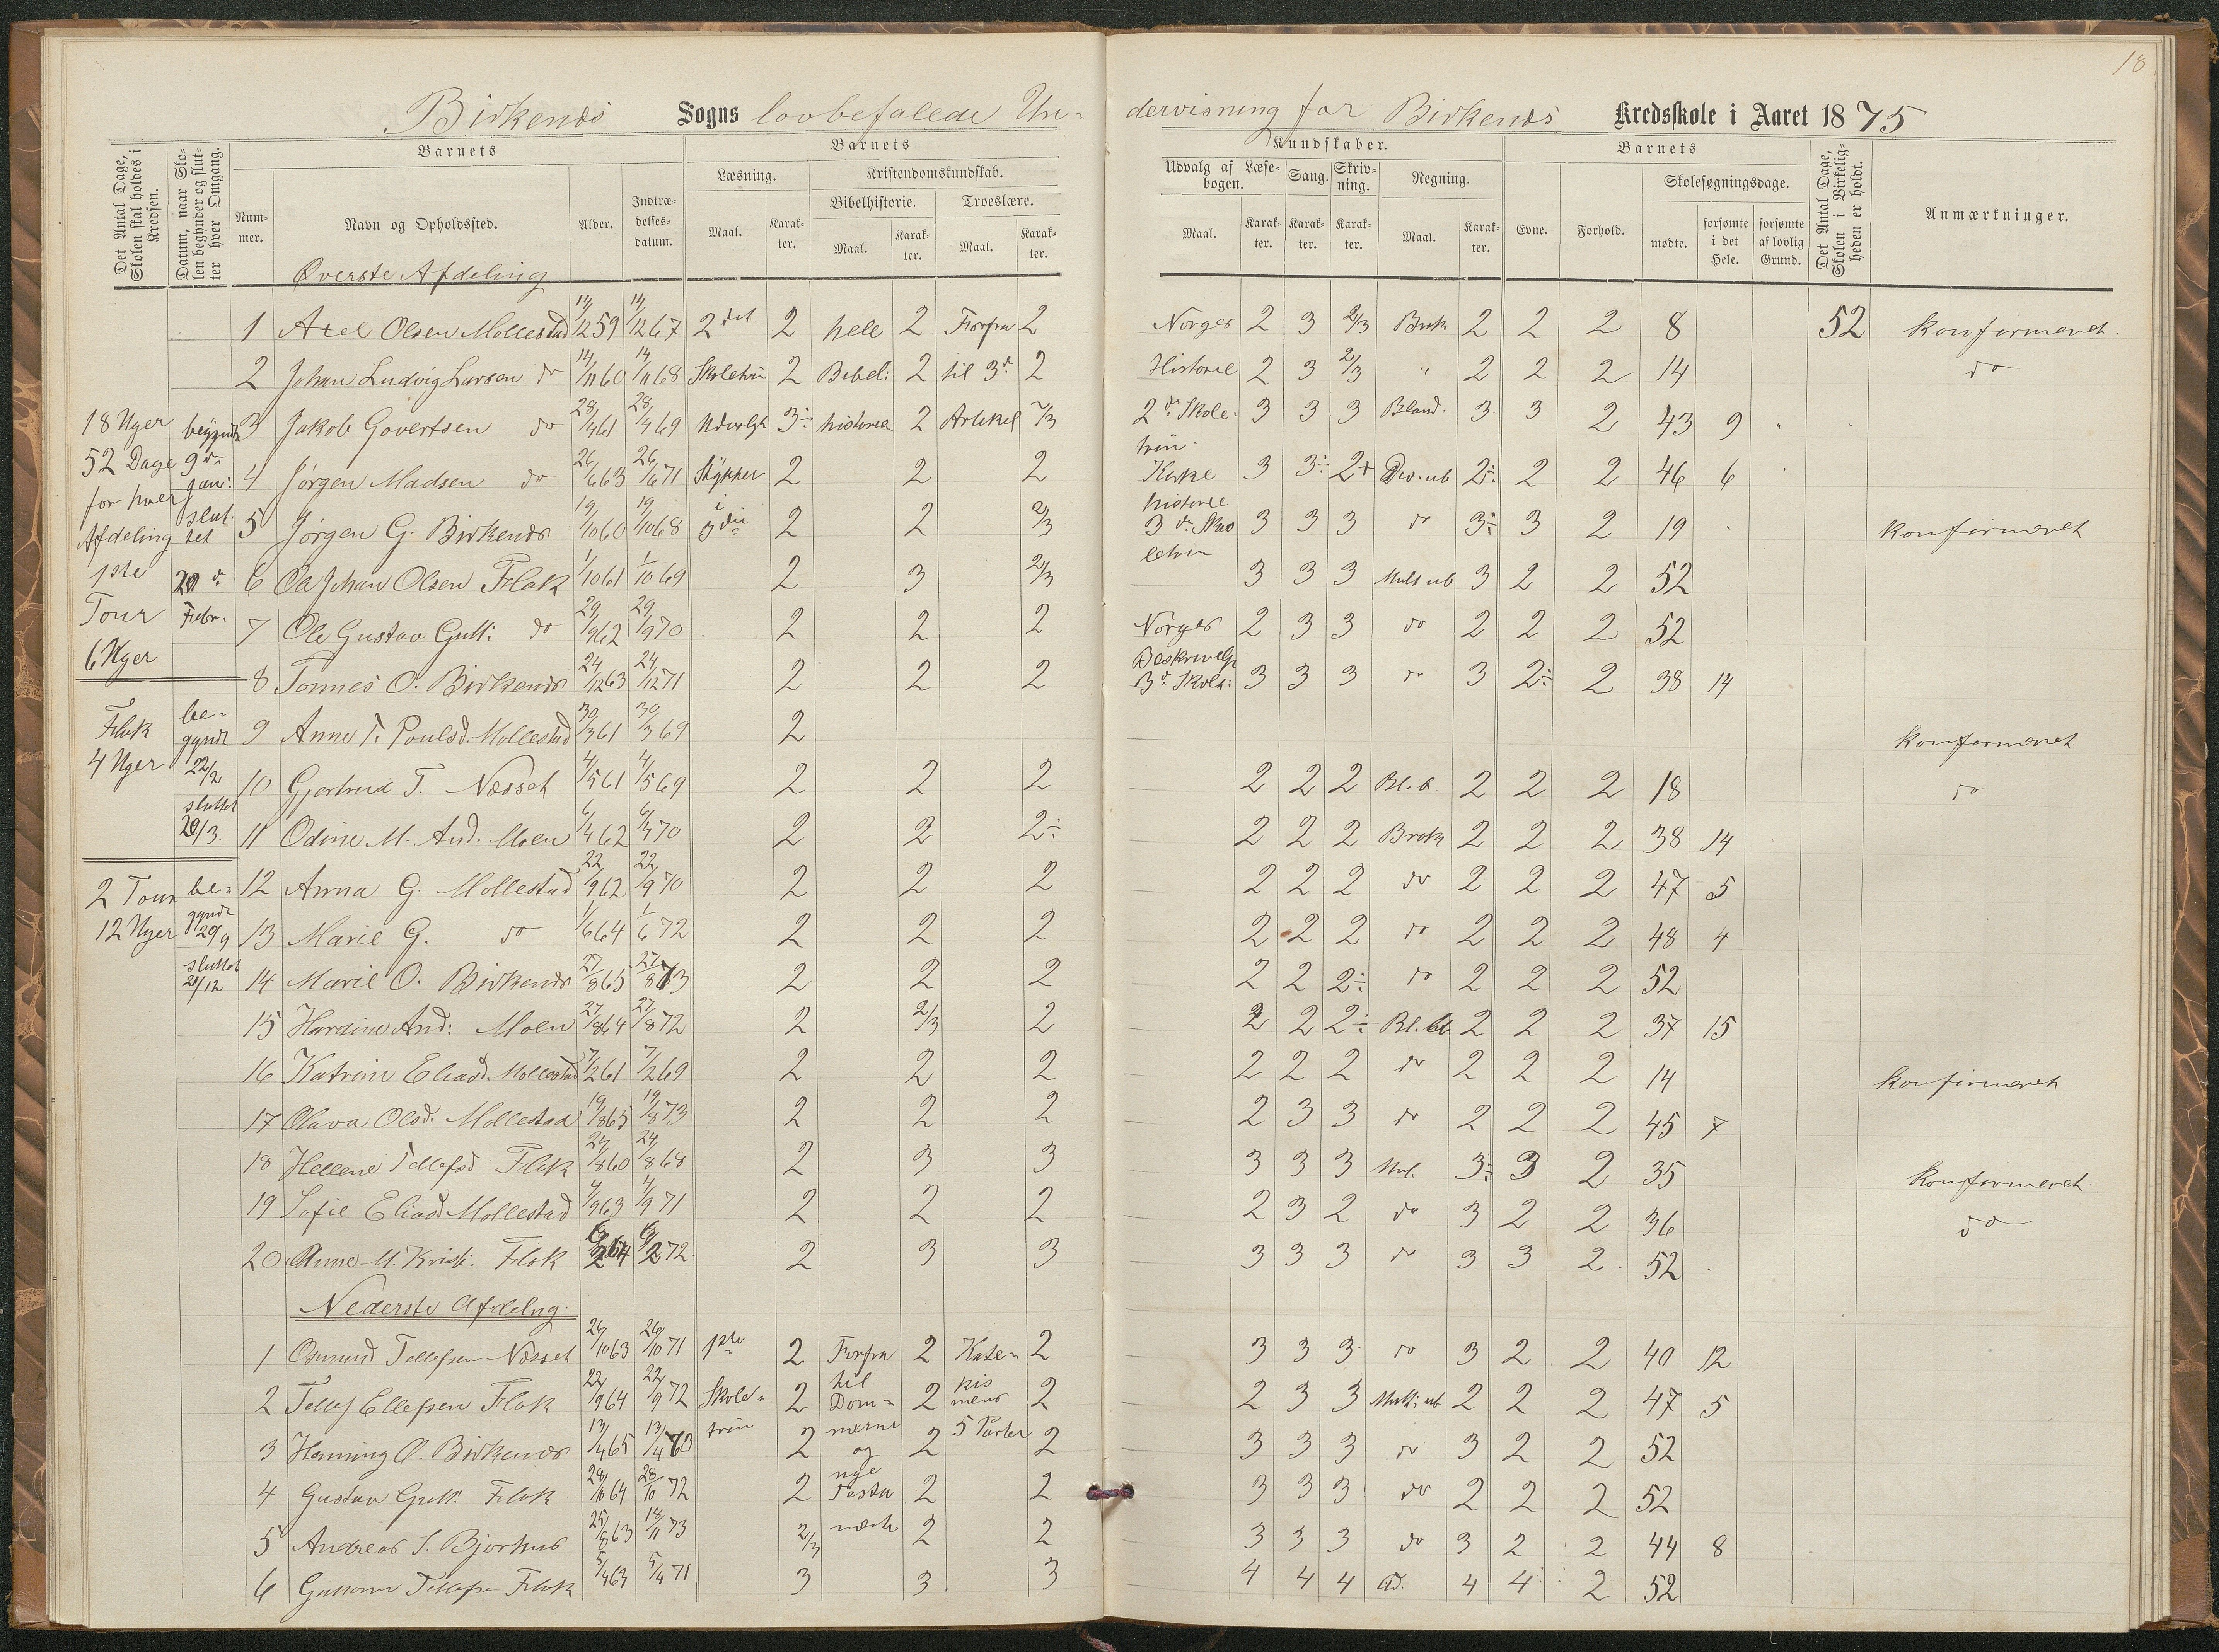 18
Birkenes Sogns lovbefalede Un- dervisning for Birkenes Kredsskole i Aaret 1875
Det Antal Dage, Skolen skal holdes i Kredsen.
Datum, naar Skolen begynder og slutter hver Omgang.
Barnets
Nummer.
Navn og Opholdssted.
Alder.
Indtrædelsesdatum.
Barnets Kundskaber.
Læsning.
Maal.
Karakter.
Kristendomskundskab.
Bibelhistorie.
Maal.
Karakter.
Troeslære.
Maal.
Karakter.
Udvalg af Læsebogen.
Maal.
Karakter.
Sang.
Karakter.
Skrivning.
Karakter.
Regning.
Maal.
Karakter.
Barnets
Evne.
Forhold.
Skolesøgningsdage.
mødte.
forsømte i det Hele.
forsømte af lovlig Grund.
Det Antal Dage, Skolen i Virkeligheden er holdt.
Anmærkninger.
18 Uger
52 Dage
for hver
Afdeling
1ste
Tour
6 Uger
begyndt
9de
Jan:
slut-
tet
20 d.
Febr.
Flak
4 Uger
be-
gyndt
22/2
sluttet
20/3
2 Tour
12 Uger
be-
gyndt
29/9
sluttet
21/12
Øverste Afdeling
1 Axel Olsen Mollestad 14/12 59 14/12 67 2det 2 hele 2 Forfra 2 Norges 2 3 2/3 Brøk 2 2 2 8 52 konfirmeret.
2 Johan Ludvig Larsen do 14/11 60 14/11 68 Skoletrin 2 Bibel: 2 til 3d. 2 Historie 2 3 2/3 " 2 2 2 14 do
3 Jakob Govertsen do 28/4 61 28/4 69 Udvalgte 3÷ historie 2 Artikel 2/3 2de Skole- trin. 3 3 3 Bland. 3 3 2 43 9
4 Jørgen Madsen do 26/6 63 26/6 71 Stykker 2 2 2 Kirke 3 3÷ 2+ Div. ub 2÷ 2 2 46 6
5 Jørgen G. Birkenes 19/10 60 19/10 68 i 3die 2 2 2/3 historie 3de Sko letrin 3 3 3 do 3÷ 3 2 19 konfirmeret
6 Ole Johan Olsen Flak 1/10 61 1/10 69 2 3 2/3 3 3 3 Mult ub 3 2 2 52
7 Ole Gustav Gutt: do 29/9 62 29/9 70 2 2 2 Norges 2 3 3 do 2 2 2 52
8 Tønnes O. Birkenes 24/12 63 24/12 71 2 2 2 Beskrivelse 3d. Skole: 3 3 3 do 3 2÷ 2 38 14
9 Anne T. Poulsd. Mollestad 30/3 61 30/3 69 2 konfirmeret
10 Gjertrud T. Næsset 4/5 61 4/5 69 2 2 2 2 2 2 Bl. B 2 2 2 18 do
11 Odine M. And. Moen 6/4 62 6/4 70 2 2 2÷ 2 2 2 Brøk 2 2 2 38 14
12 Anna G. Mollestad 22/9 62 22/9 70 2 2 2 2 2 2 do 2 2 2 47 5
13 Marie G. do 1/6 64 1/6 72 2 2 2 2 2 2 do 2 2 2 48 4
14 Marie O. Birkenes 27/8 65 27/8 73 2 2 2 2 2 2÷ do 2 2 2 52
15 Hardine And: Moen 27/8 64 27/8 72 2 2/3 2 2 2 2÷ Bl. ub 2 2 2 37 15
16 Katrine Eliasd. Mollestad 7/2 61 7/2 69 2 2 2 2 2 2 do 2 2 2 14 konfirmeret
17 Olava Olsd. Mollestad 19/8 65 19/8 73 2 2 2 2 3 3 do 2 2 2 45 7
18 Hellene Tellefsd Flak 24/8 60 24/8 68 2 3 3 3 3 3 Mul. 3÷ 3 2 35 konfirmeret.
19 Sofie Eliasd. Mollestad 4/9 63 4/9 71 2 2 2 2 3 2 do 3 2 2 36 do
20 Anne M. Krist. Flak 6/2 64 6/2 72 2 3 3 3 3 3 do 3 3 2 52
Nederste Afdelng.
1 Osmund Tellefsen Næsset 26/10 63 26/10 71 1ste 2 Forfra 2 Kate- 2 3 3 3 do 3 2 2 40 12
2 Tellef Ellefsen Flak 22/9 64 22/9 72 Skole- 2 til Dom- 2 kis mens 2 2 3 3 Mult: ub 2 2 2 47 5
3 Henning O. Birkenes 13/4 65 13/4 73 trin 2 merne og 2 5 Parter 2 3 3 3 do 3 2 2 52
4 Gustav Gutt. Flak 28/10 64 28/10 72 2 nye Testa 2 2 3 3 3 do 2 2 2 52
5 Andreas S. Bjorhus 25/8 63 18/11 73 2/3 mente 2 2 3 3 3 do 3 2 2 44 8
6 Gunnar Tellefsen Flak 5/4 63 5/4 71 3 3 3 4 4 4 Ad. 4 4 2 52